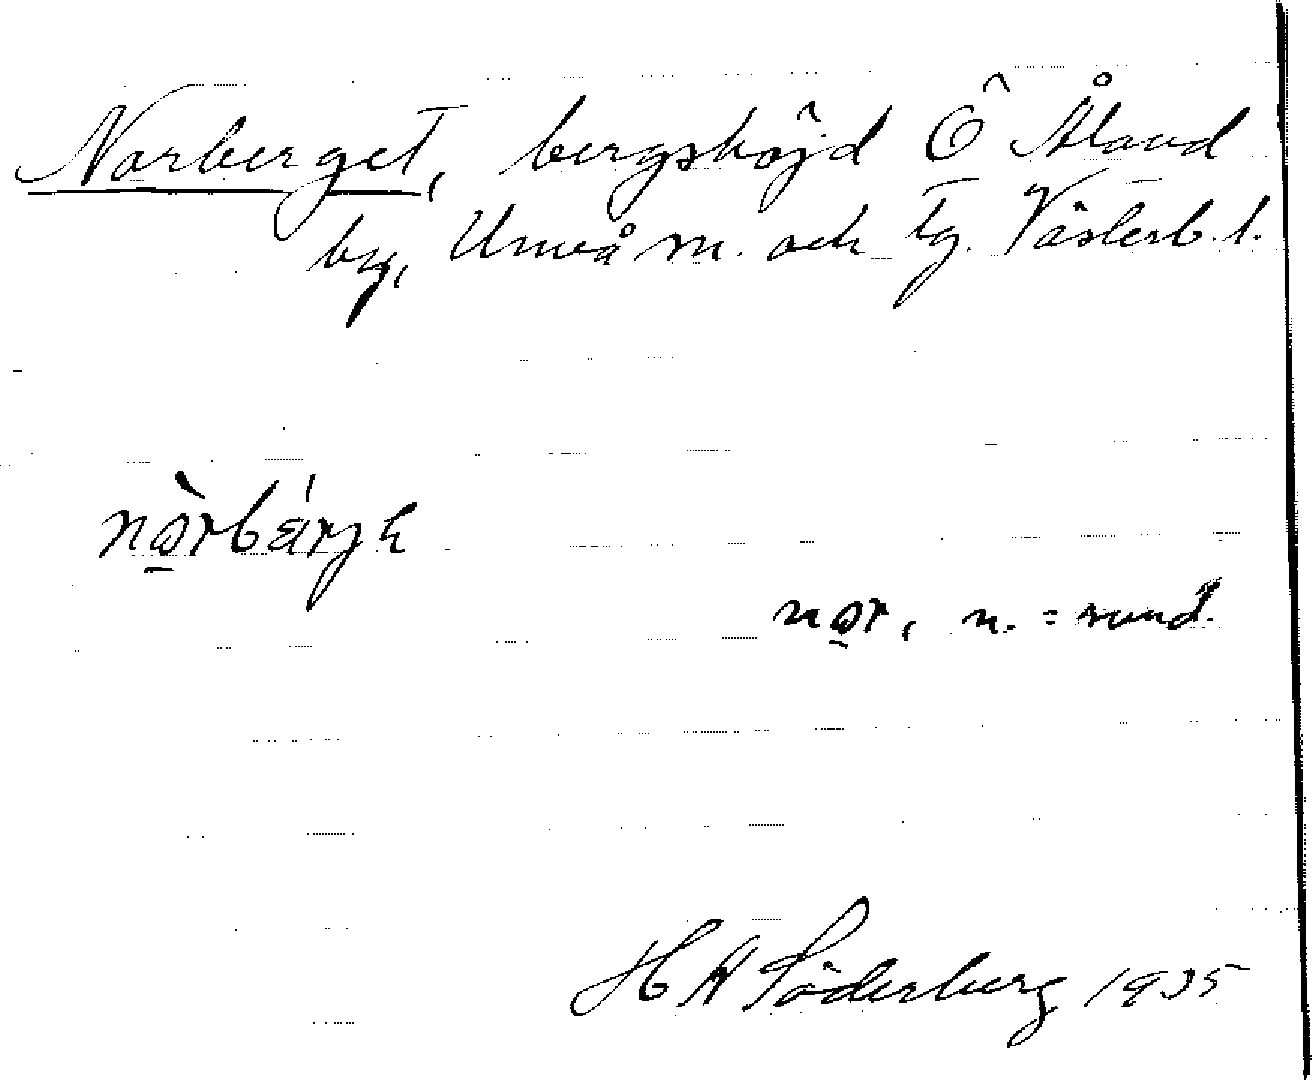 Norberget, bergshöjd Ö Åland
by, Umeå sn. och tg. Västerb. l.
nòrbǽrjɛ
nor, n. = sund.
H A Söderberg 1935